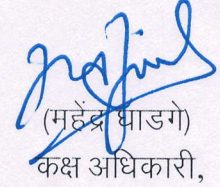 (महेंद्र घाडगे)
कक्ष अधिकारी,